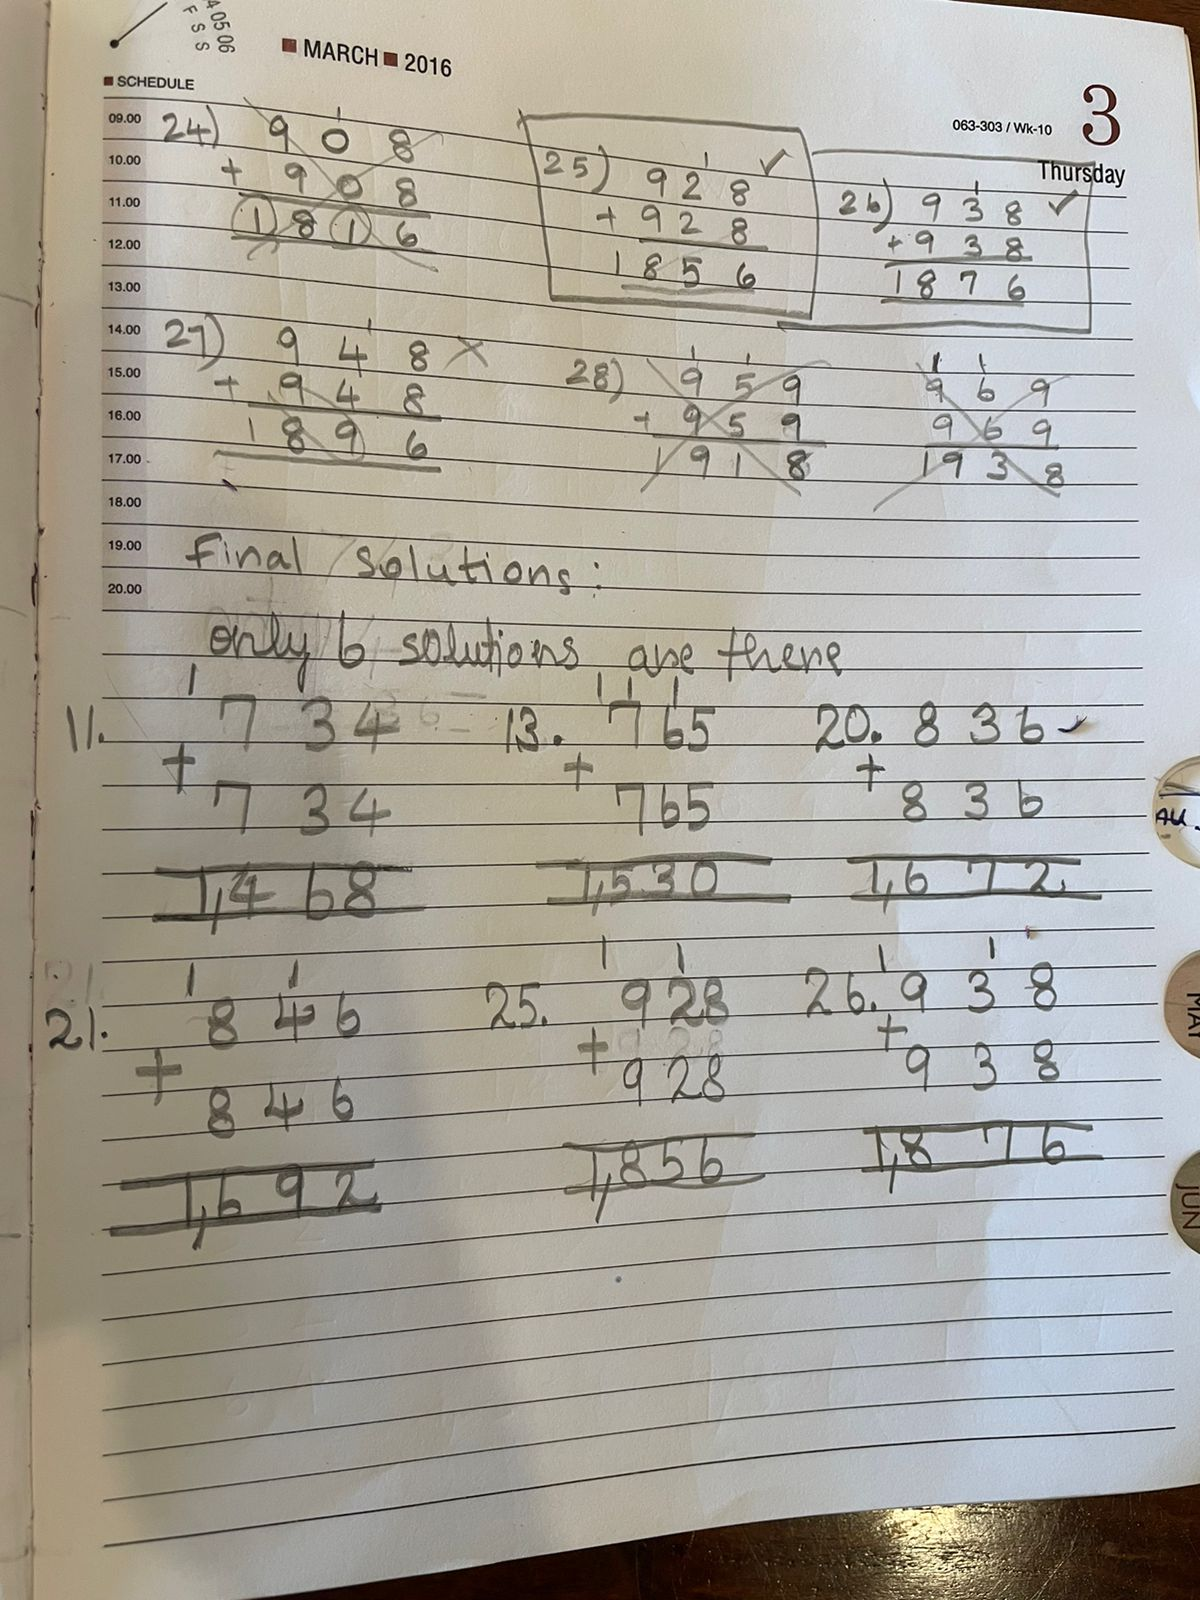 4 05 06
F S S
MARCH 2016
SCHEDULE
063-303 / Wk-10
3
Thursday
09.00
10.00
11.00
12.00
13.00
14.00
15.00
16.00
17.00
18.00
19.00
20.00
1
24) 9 0 8
+ 9 0 8
1 8 1 6
1
25) 9 2 8 ✓
+ 9 2 8
1 8 5 6
1
26) 9 3 8 ✓
+ 9 3 8
1 8 7 6
1
27) 9 4 8 ×
+ 9 4 8
1 8 9 6
1 1
28) 9 5 9
+ 9 5 9
1 9 1 8
1 1
9 6 9
9 6 9
1 9 3 8
Final solutions:
only 6 solutions are there
1
11. 7 3 4
+ 7 3 4
1,4 6 8
1 1 1
13. 765
+ 765
1,530
20. 8 3 6
+ 8 3 6
1,6 7 2
1 1
21. 8 4 6
+ 8 4 6
1,6 9 2
1 1
25. 928
+ 928
1,856
1 1
26. 9 3 8
+ 9 3 8
1,8 7 6
MAY
JUN